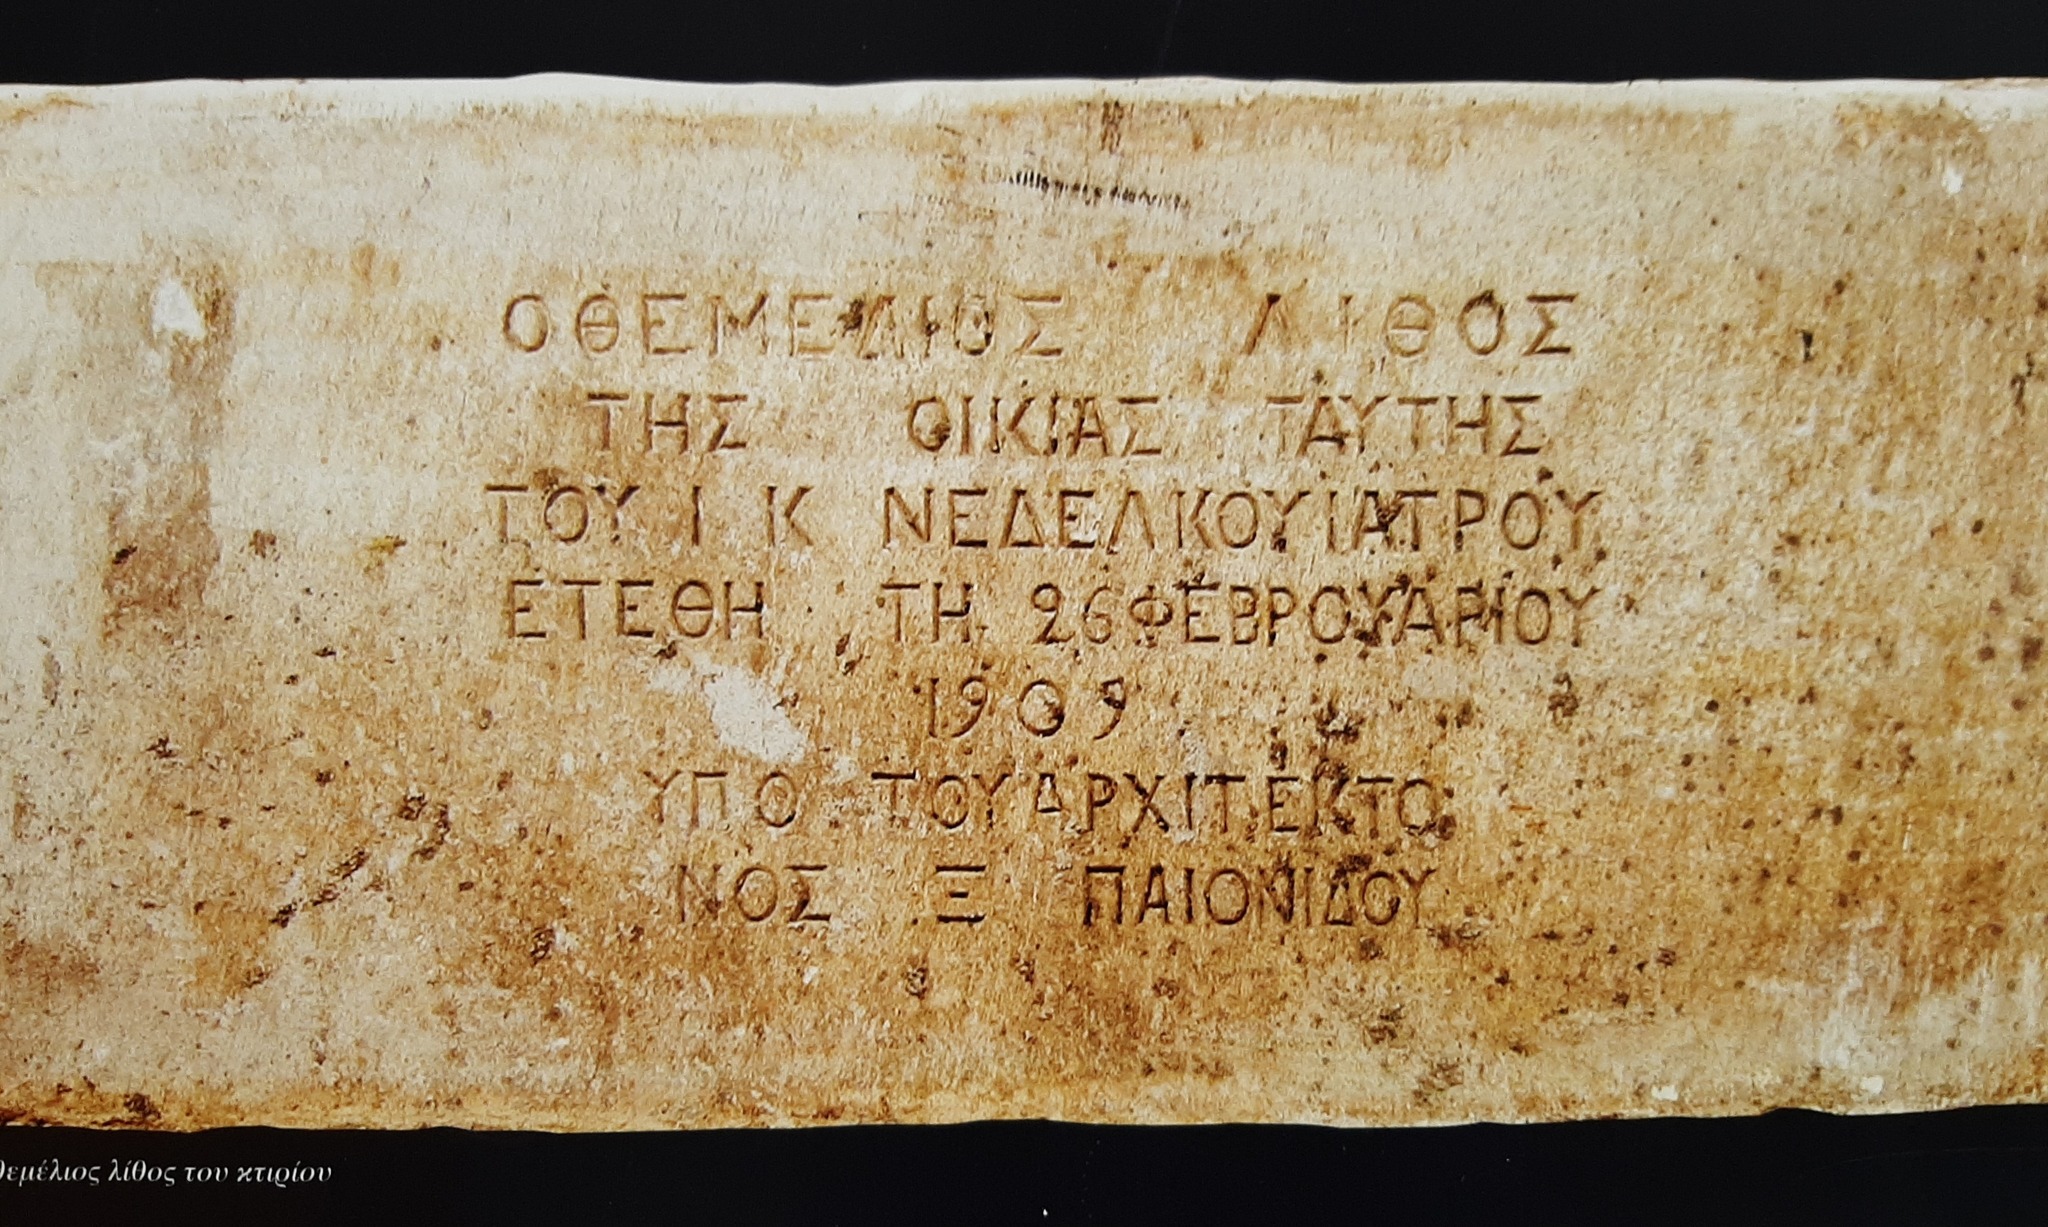 Ο ΘΕΜΕΛΙΟΣ ΛΙΘΟΣ
ΤΗΣ ΟΙΚΙΑΣ ΤΑΥΤΗΣ
ΤΟΥ Ι Κ ΝΕΔΕΛΚΟΥ ΙΑΤΡΟΥ
ΕΤΕΘΗ ΤΗ 26 ΦΕΒΡΟΥΑΡΙΟΥ
1909
ΥΠΟ ΤΟΥ ΑΡΧΙΤΕΚΤΟ
ΝΟΣ Ξ ΠΑΙΟΝΙΔΟΥ
θεμέλιος λίθος του κτιρίου